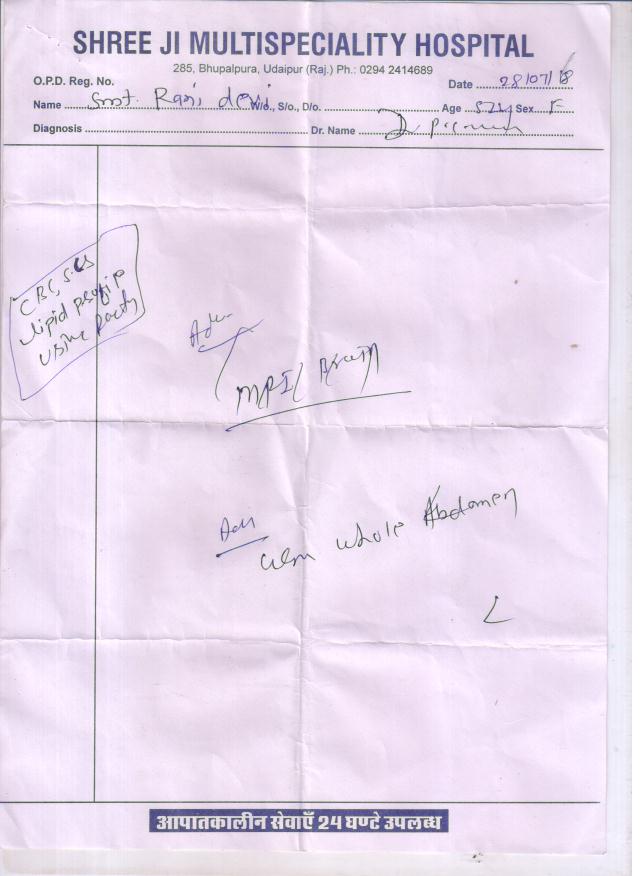 SHREE JI MULTISPECIALITY HOSPITAL
285, Bhupalpura, Udaipur (Raj.) Ph.: 0294 2414689
O.P.D. Reg. No. Date 28/07/18
Name Smt. Rani devi W/o., S/o., D/o. Age 52y Sex F
Diagnosis Dr. Name Dr
CBC, S.
lipid
Adv
MRI/ Brain
Adv
whole Abdomen
आपातकालीन सेवाएँ 24 घण्टे उपलब्ध